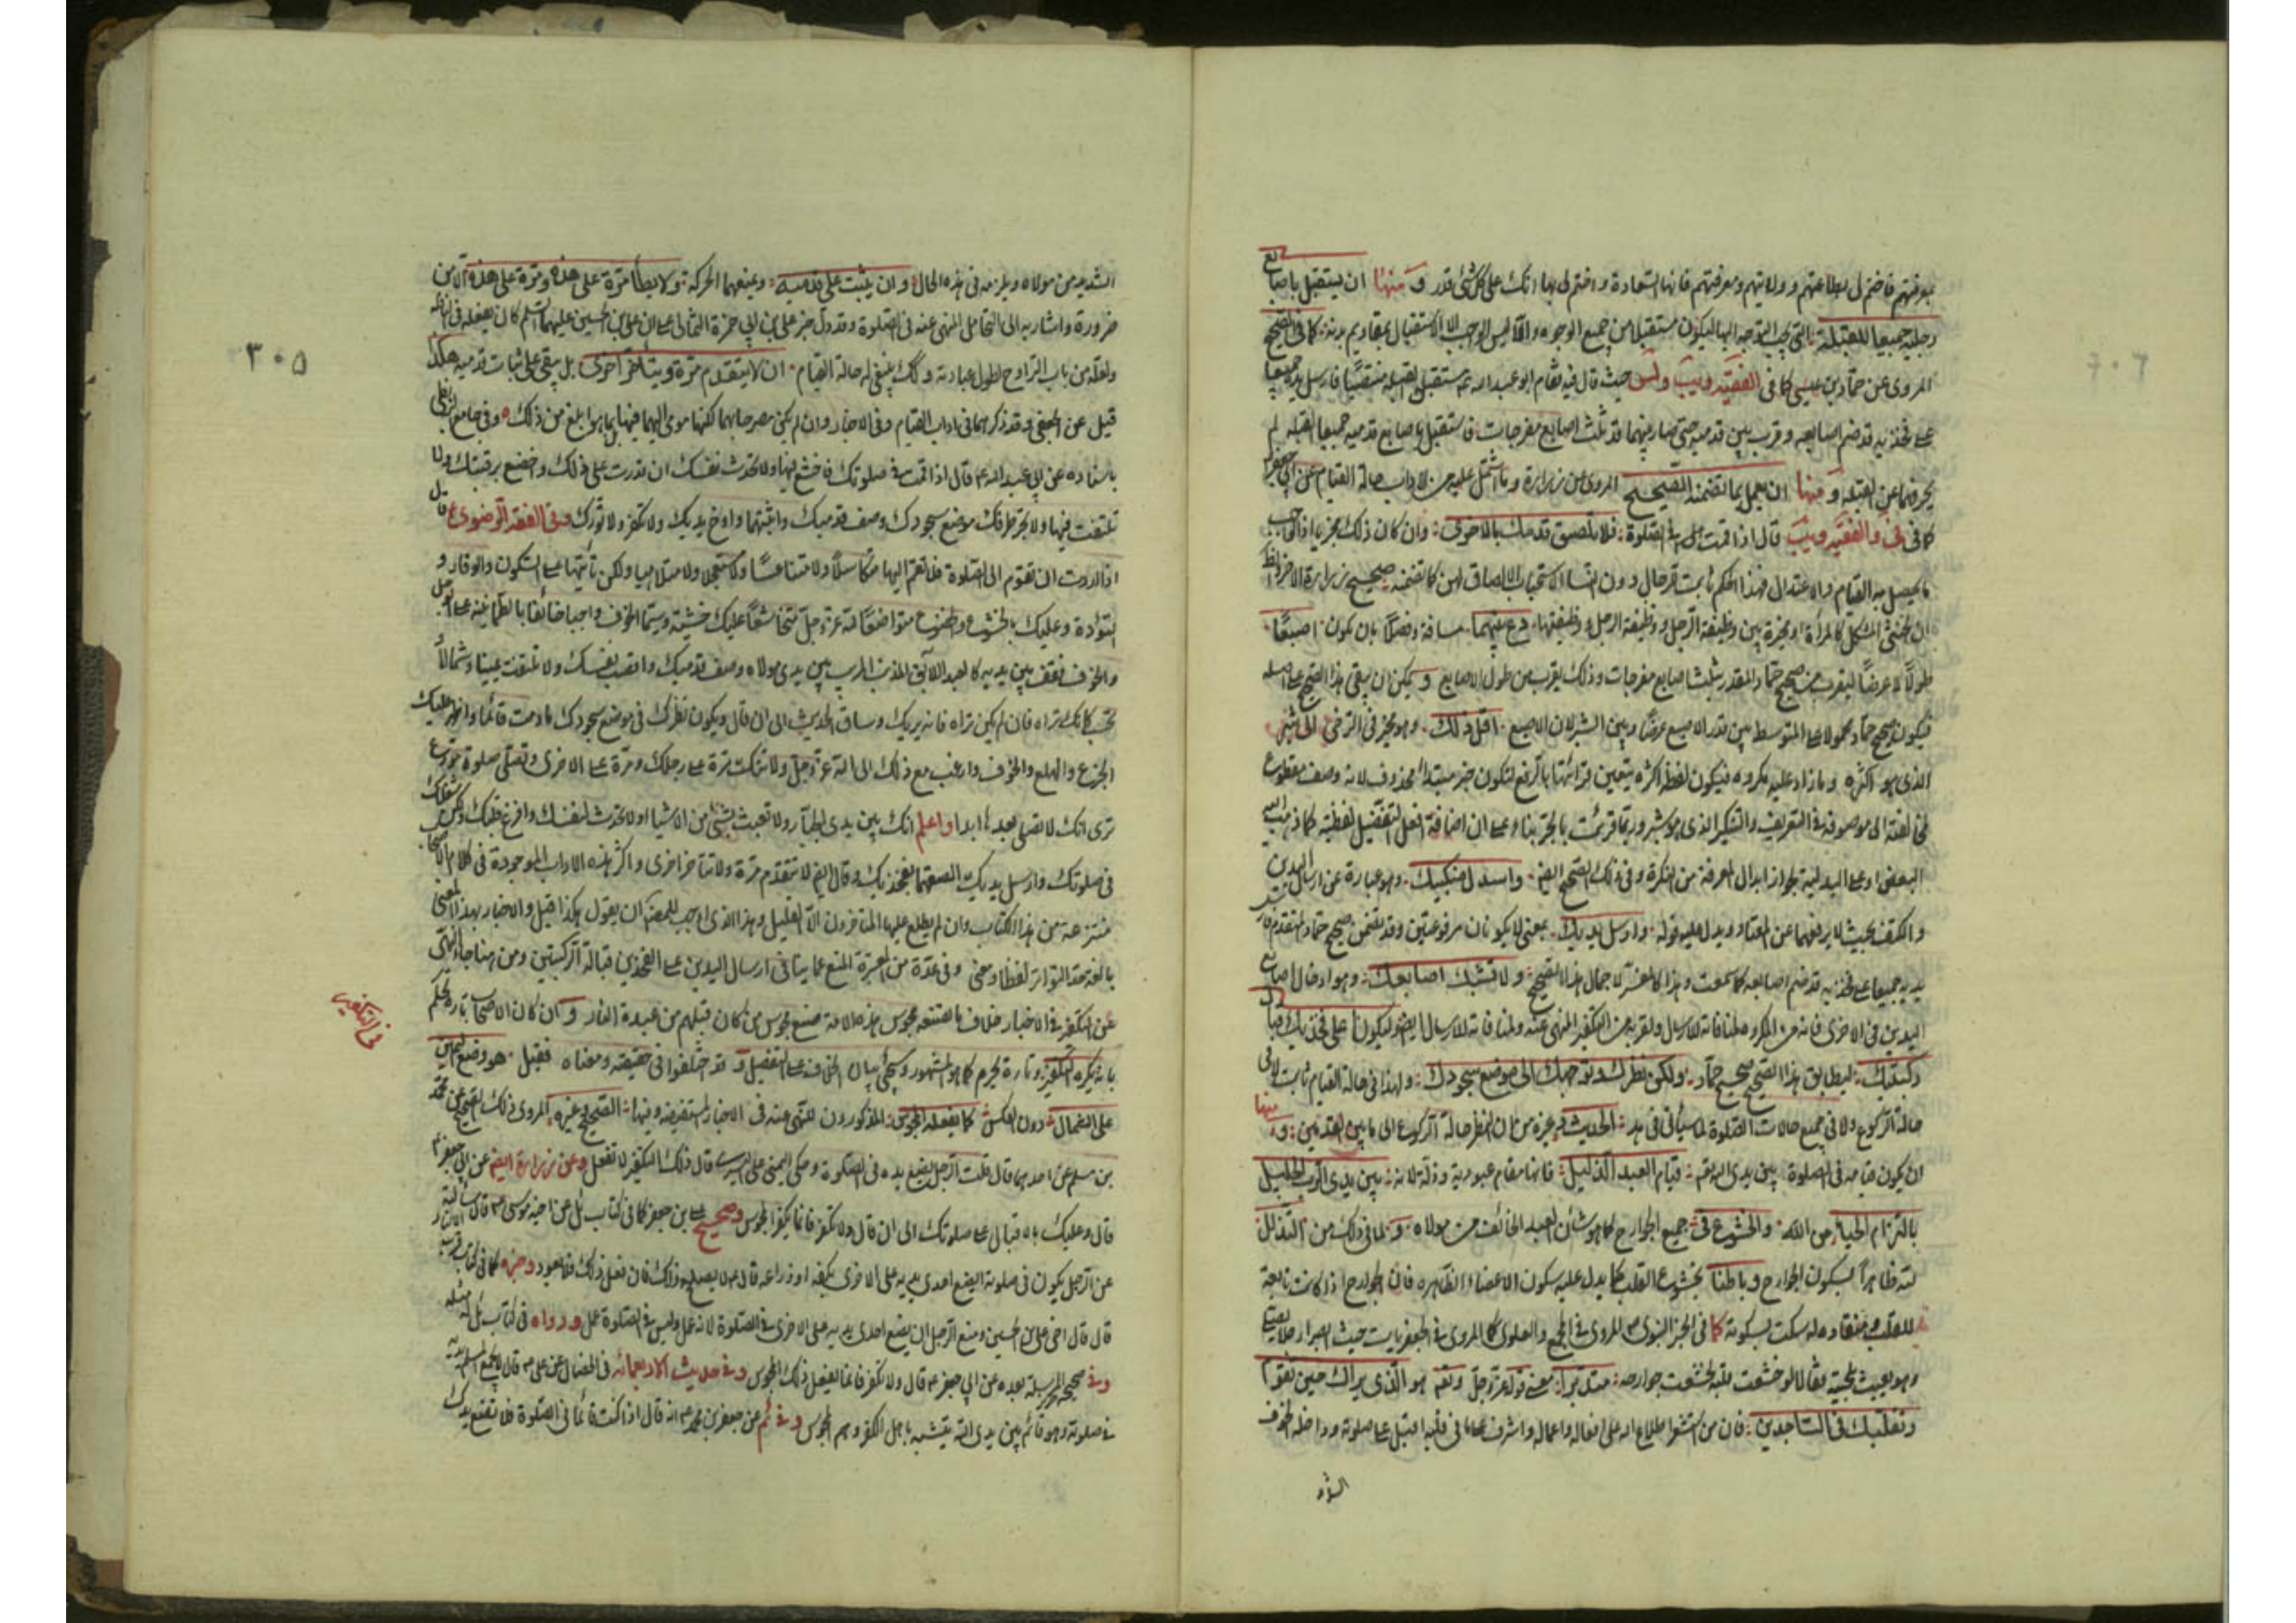 بمعرفتهم فاختم لي بطاعتهم وولايتهم ومعرفتهم فانها السعادة واختم لي بها انك على كل شئ قدير ومنها ان يستقبل باصابع
رجليه جميعا للقبلة التي يجب التوجه اليها ليكون مستقبلا من جميع الوجوه والا فليس الواجب الا الاستقبال بمقاديم بدنه كما في الصحيح
المروى عن حماد بن عيسى كما في الفقيه ويب حيث قال فيه فقام ابو عبد الله ع مستقبل القبلة منتصبا فارسل يديه جميعا
على فخذيه قد ضم اصابعه وقرب بين قدميه حتى صار بينهما قدر ثلث اصابع مفرجات فاستقبل باصابع قدميه جميعا القبلة لم
يحرفهما عن القبلة ومنها ان يعمل بما تضمنه الصحيح المروى عن زرارة وما اشتمل عليه من الاداب حالة القيام عن ابي جعفر
كما في في والفقيه ويب قال اذا قمت في الصلوة فلا تلصق قدمك بالاخرى وان كان ذلك مجزيا اذ الواجب
ما يحصل به القيام والاعتدال فهذا الحكم ثابت للرجال دون النسا لاستحباب الالصاق لهن كما تضمنه صحيح زرارة الاخر
ان الخنثى المشكل كالمرأة او مخيرة بين وظيفة الرجل ووظيفتها دع بينهما مسافة وفصلا بان يكون اصبعا
طولا لا عرضا ليقرب من صحيح حماد المقدر بثلث اصابع مفرجات وذلك يقرب من طول الاصابع ويمكن ان يبقى هذا الصحيح على اصله
فيكون صحيح حماد محمولا على المتوسط بين قدر الاصبع عرضا وبين الشبر لان الاصبع اقل ذلك وهو مخير في الترخي الى شبر
الذي هو اكثره وما زاد عليه مكروه فيكون لفظ اكثره يتعين قرائتها بالرفع لتكون خبر مبتدأ محذوف لانه وصف مقطوع
لمخالفته الى موصوفه في التعريف والتنكير الذي هو شبر وربما قرئت بالجر بناء على ان اضافة افعل التفضيل لفظية كما ذهب اليه
البعض او على البدلية بجواز ابدال المعرفة من النكرة وفي ذلك الصحيح ايضا واسدل منكبيك وهو عبارة عن ارسال اليدين
والكتف بحيث لا يرفعهما عن المعتاد ويدل عليه قوله وارسل يديك بمعنى لا يكونان مرفوعتين وقد تضمن صحيح حماد المتقدم
يديه جميعا على فخذيه قد ضم اصابعه كما سمعت وهذا كالمفسر لاجمال هذا الصحيح ولا تشبك اصابعك وهو ادخال اصابع
اليدين في الاخرى فانه من المكروه لمنافاته للارسال ولقربه من التكفير المنهى عنه ولمنافاته للارسال ايضا وليكونا على فخذيك قبالة
ركبتيك ليطابق هذا الصحيح صحيح حماد وليكن نظرك وتوجهك الى موضع سجودك ولهذا في حالة القيام ثابت لا في
حالة الركوع ولا في جميع حالات الصلوة لما سيأتي في هذا الحديث وغيره من ان النظر حالة الركوع الى ما بين القدمين ومنها
ان يكون قيامه في الصلوة بين يدى الله تعم قيام العبد الذليل فانها مقام عبودية وذلة لانه بين يدى الرب الجليل
بالتزام الحياء من الله والخشوع في جميع الجوارح كما هو شأن العبد الخائف من مولاه ولما في ذلك من التذلل
لله ظاهرا بسكون الجوارح وباطنا بخشوع القلب كما يدل عليه سكون الاعضاء الظاهره فان الجوارح اذا كانت تابعة
للقلب ومنقاده له سكنت لسكونه كما في الخبر النبوى المروى في المجمع والعلوى كما المروى في الجعفريات حيث ابصرا رجلا يصلي
وهو يعبث بلحيته فقالا لو خشعت قلبه لخشعت جوارحه متدبرا معنى قوله عز وجل وتعم هو الذي يراك حين تقوم
وتقلبك في الساجدين فان من استشعر اطلاع الله على افعاله واعماله واشرف على ما في قلبه اقبل على صلوته وداخله الخوف
الشديد
٣٠٥
الشديد من مولاه ويلزمه في هذه الحال وان يثبت على قدميه ويمنعهما الحركة ولا يطأ مرة على هذه ومرة على هذه الا من
ضرورة واشار به الى التحامل المنهى عنه في الصلوة وقد دل خبر علي بن ابي حمزة الثمالى على ان علي بن الحسين عليهما السلم كان يفعله في النافلة
ولعله من باب التراوح لطول عبادته وكك ينبغي له حالة القيام ان لا يتقدم مرة ويتأخر اخرى بل يبقى على ثبات قدميه هكذا
قيل عن الجعفى وقد ذكرهما في اداب القيام وفي الاخبار وان لم يكن مصرحا بهما لكنهما مومى اليهما فيها بما هو ابلغ من ذلك وفي جامع البزنطى
باسناده عن ابي عبد الله ع قال اذا قمت في صلوتك فاخشع فيها ولا تحدث نفسك ان قدرت على ذلك واخضع برقبتك ولا
تلتفت فيها ولا يجز طرفك موضع سجودك وصف قدميك واثبتهما وارخ يديك ولا تكفر ولا تورك وفي الفقه الرضوى قال
اذا اردت ان تقوم الى الصلوة فلا تقم اليها متكاسلا ولا متناعسا ولا مستعجلا ولا متلاهيا ولكن تأتيها على السكون والوقار و
التؤادة وعليك بالخشوع والخضوع متواضعا لله عز وجل متخاشعا عليك خشية وسيما الخوف راجيا خائفا بالطمانينة على الوجل
والخوف فقف بين يديه كالعبد الآبق المذنب بين يدى مولاه وصف قدميك وانصب نفسك ولا تلتفت يمينا وشمالا
تحسب كانك تراه فان لم تكن تراه فانه يريك وساق الحديث الى ان قال ويكون نظرك في موضع سجودك ما دمت قائما واظهر عليك
الجزع والهلع والخوف وارغب مع ذلك الى الله عز وجل ولا تتكئ مرة على رجلك ومرة على الاخرى وتصلى صلوة مودع
ترى انك لا تصلى بعدها ابدا واعلم انك بين يدى الجبار ولا تعبث بشئ من الاشيا ولا تحدث لنفسك وافرغ قلبك وليكن شغلك
في صلوتك وارسل يديك الصقهما بفخذيك وقال ايضا لا تتقدم مرة ولا تتأخر اخرى واكثر هذه الاداب الموجودة في كلام الاصحاب
منتزعة من هذا الكتاب وان لم يطلع عليها المتاخرون الا القليل وهذا الذي اوجب للمصنف ان يقول هكذا قيل والاخبار بهذا المعنى
بالغة حد التواتر لفظا ومعنى وفي عدة من المعتبرة المنع عما ينافى ارسال اليدين على الفخذين قبالة الركبتين ومن هنا جاء النهى
عن التكفير في الاخبار خلاف ما صنعه مجوس هذه الامة صنع مجوس من كان قبلهم من عبدة النار وان كان الاصحاب تارة يحكم
بانه يكره التكفير وتارة يحرم كما هو المشهور وسيجئ بيان الخلاف على التفصيل وقد اختلفوا في حقيقته ومعناه فقيل هو وضع اليمين
في التكفير
على الشمال دون العكس كما يفعله المجوس المذكورون للنهى عنه في الاخبار المستفيضه ومنها الصحيح وغيره المروى ذلك الصحيح عن محمد
بن مسلم عن احدهما قال قلت الرجل يضع يده في الصلوة وحكى اليمنى على اليسرى قال ذلك التكفير لا تفعل وعن زرارة ايضا عن ابي جعفر ع
قال وعليك بالاقبال على صلوتك الى ان قال ولا تكفر فانما يكفر المجوس وصحيح علي بن جعفر كما في كتاب ئل عن اخيه موسى ع قال سألته
عن الرجل يكون في صلوته ايضع احدى يديه على الاخرى بكفه او ذراعه قال لا يصلح ذلك فان فعل ذلك فلا يعود وخبره كما في كتاب قرب الاسناد
قال قال اخى علي بن الحسين وضع الرجل احدى يديه على الاخرى في الصلوة عمل وليس في الصلوة عمل ورواه في كتاب ئل مثله
وفي صحيحة المرسلة عن ابي جعفر ع قال ولا تكفر فانما يفعل ذلك المجوس وفي حديث الاربعمائه في الخصال عن علي ع قال لا يجمع المسلم يديه
في صلوته وهو قائم بين يدى الله يتشبه باهل الكفر وهم المجوس وفي ئم عن جعفر بن محمد ع انه قال اذا كنت قائما في الصلوة فلا تضع يدك